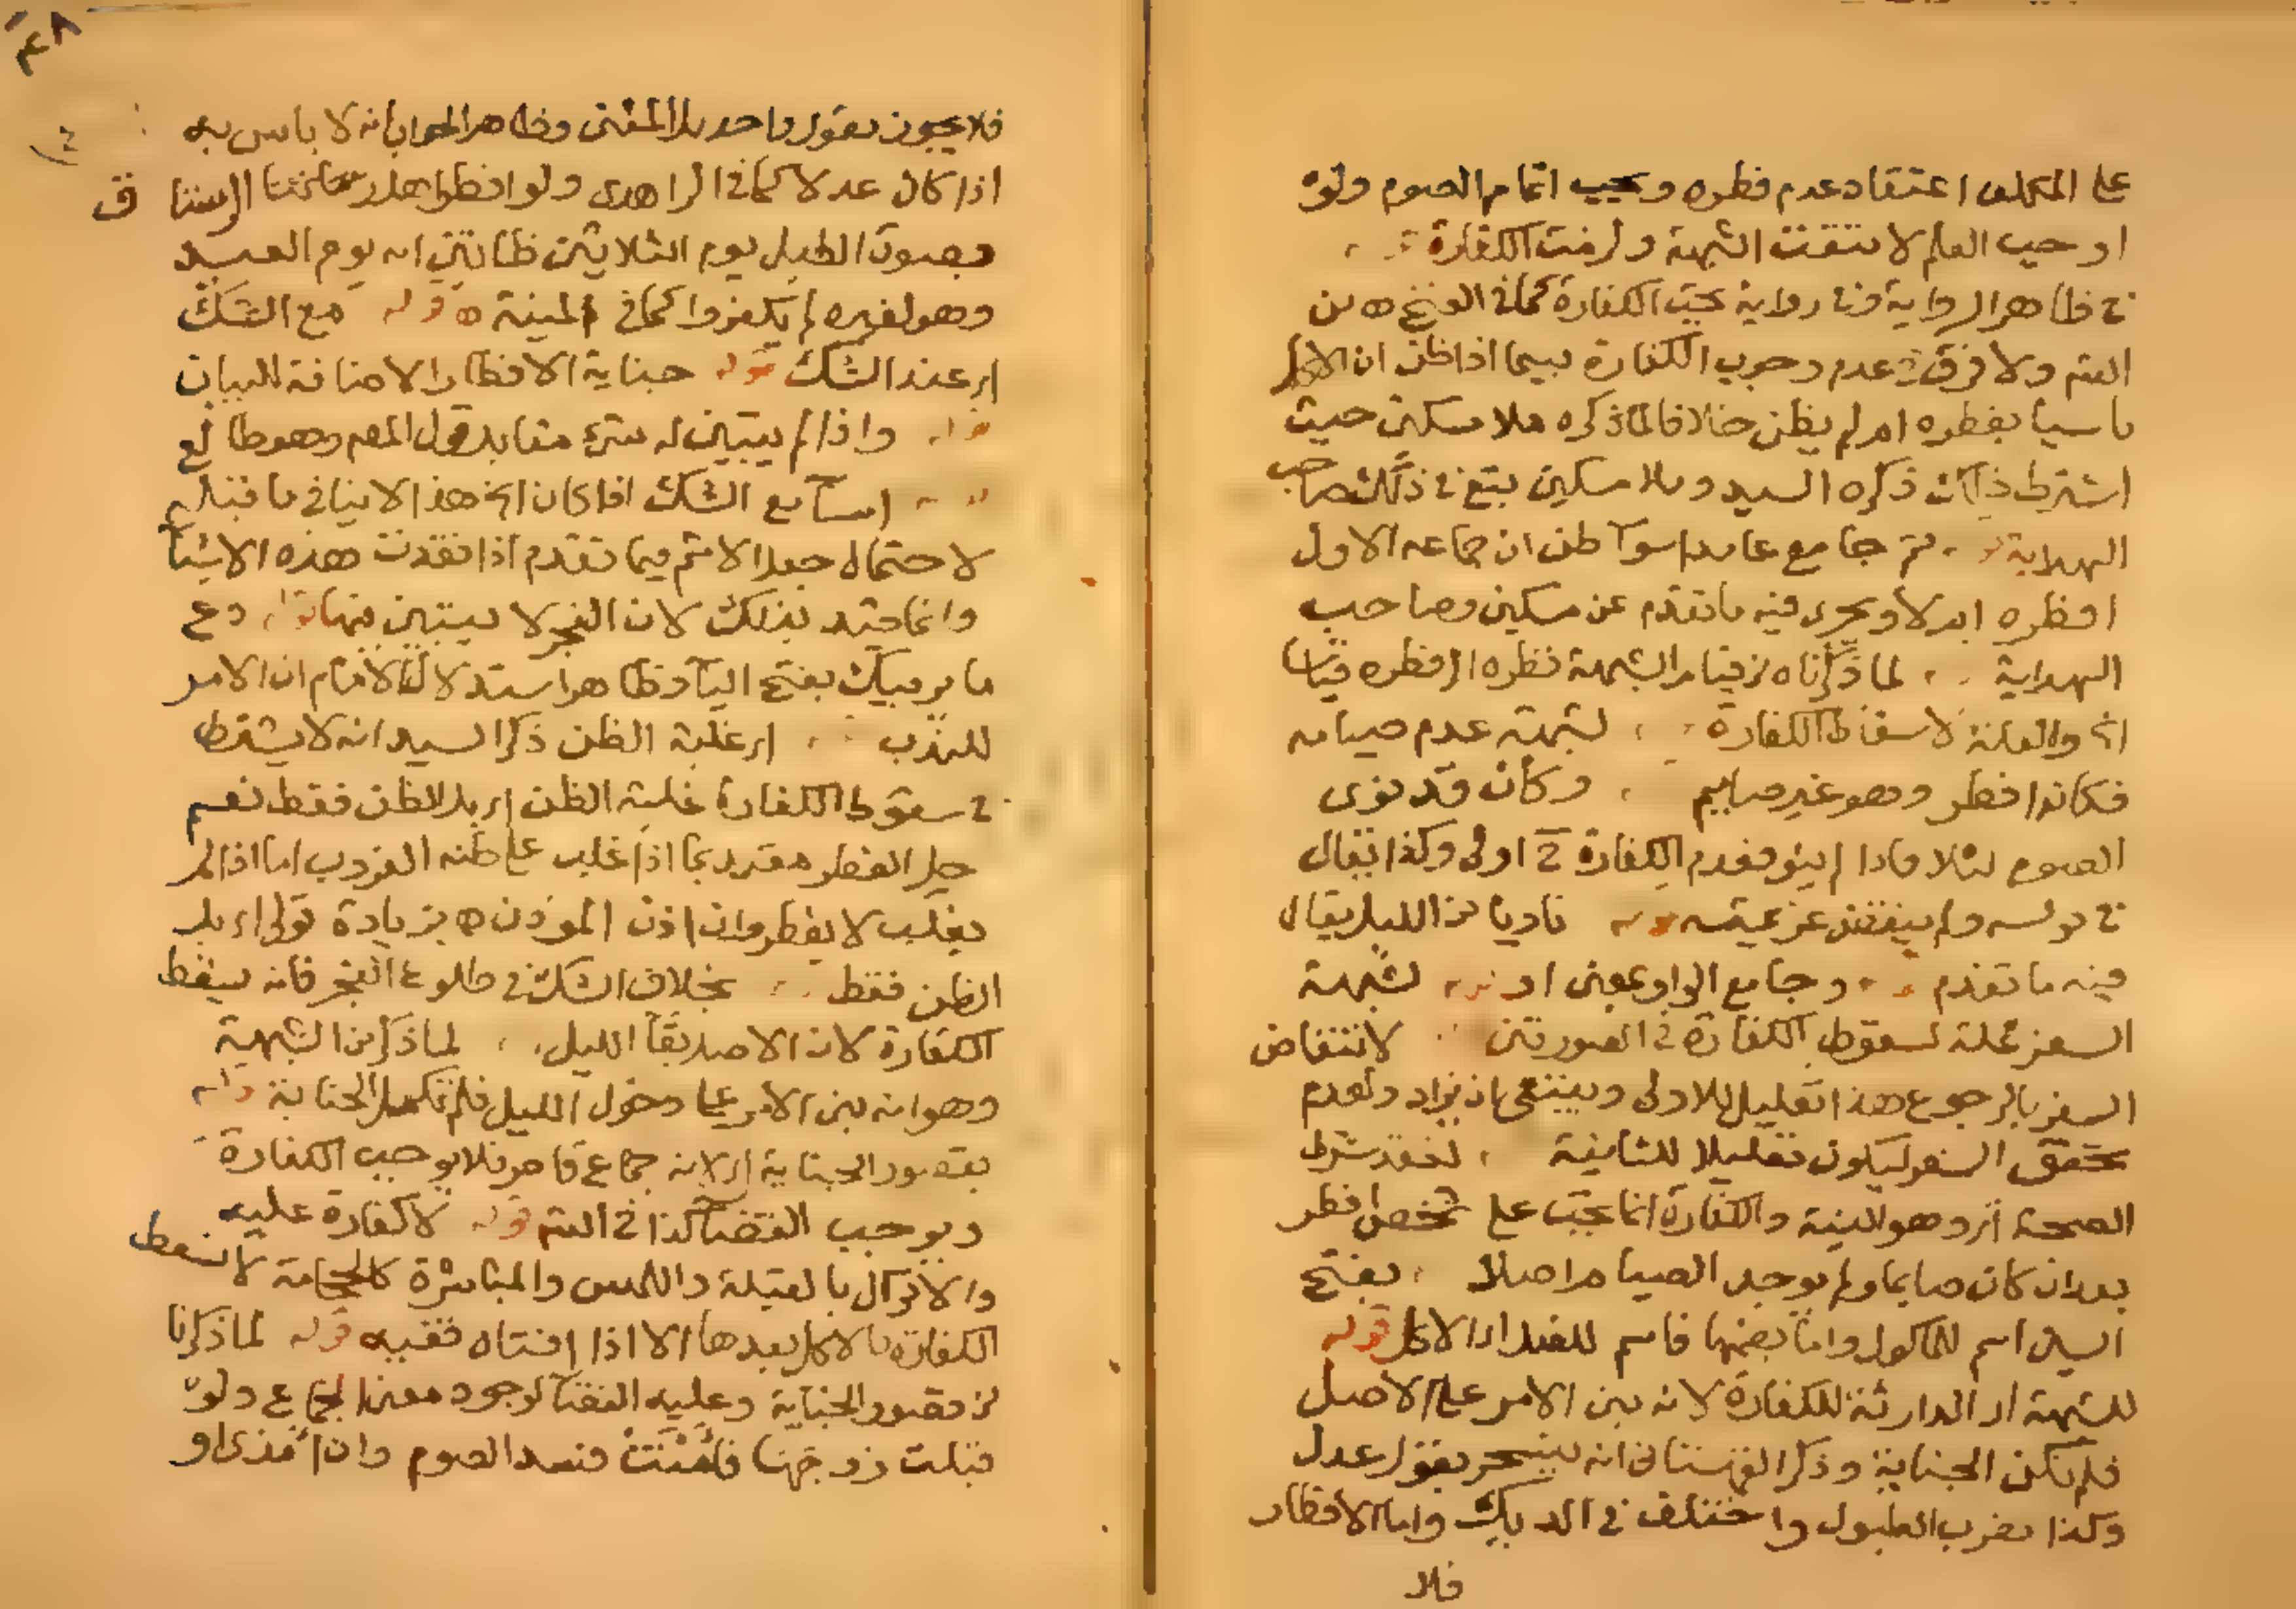 على المكلف اعتقاد عدم فطره ويجب اتمام الصوم ولو
اوجب العلم لانتفت الشبهة ولزمت الكفارة
في ظاهر الرواية وفي رواية تجب الكفارة كما في
ولا فرق في عدم وجوب الكفارة بينما اذا ظن ان الاكل
ناسيا يفطره ام لم يظن خلافا لما ذكره ملا مسكين حيث
اشترط ذلك ذكره السيد وملا مسكين تبع في ذلك صاحب
الهداية ثم جامع عامدا سوآ ظن ان جماعه الاول
افطره ام لا ويجرى فيه ما تقدم عن مسكين وصاحب
الهداية لما ذكرناه من قيام الشبهة نظره الى فطره قياسا
الخ والعلة لاسقاط الكفارة لشبهة عدم صيامه
فكانه افطر وهو غير صايم وكان قد نوى
الصوم ليلا فاذا لم ينو فعدم الكفارة ح اولى وكذا يقال
في قوله ولم ينقض عزيمته قوله ناويا من الليل يقال
فيه ما تقدم وجامع الواو بمعنى او قوله لشبهة
السفر علة لسقوط الكفارة في الصورتين لانتقاض
السفر بالرجوع هذا تعليل للاولى وينبغي ان يزاد ولعدم
تحقق السفر ليكون تعليلا للثانية لفقد شرط
الصحة اى وهو النية والكفارة انما تجب على شخص افطر
بعد ان كان صايما ولم يوجد الصيام اصلا بفتح
السين اسم للماكول واما بضمها فاسم للفعل اى الاكل قوله
للشبهة اى الدارئة للكفارة لانه بنى الامر على الاصل
فلم تكن الجناية وذكر القهستاني انه يتسحر بقول عدل
وكذا بضرب الطبول واختلف في الديك واما الافطار
فلا
فلا يجوز بقول واحد بل المثنى وظاهر الجواب انه لا باس به
اذا كان عدلا كما في الزاهدى ولو افطر اهل الرستاق
بصوت الطبل يوم الثلاثين ظانين انه يوم العيد
وهو لغيره لم يكفروا كما في المنية ه قوله مع الشك
اى عند الشك قوله جناية الافطار الاضافة للبيان
قوله واذا لم يتبين له شيء مقابل قول المصـ وهو طالع
قوله اسآ مع الشك اذا كان الخ هذا لا ينافي ما قبله
لاحتمال جعل الاثم فيما تقدم اذا فقدت هذه الاشيآ
وانما قيد بذلك لان الفجر لا يتبين فيها قوله دع
ما يريبك بفتح اليآ وظاهر استدلال الامام ان الامر
للندب اى غلبة الظن ذكر السيد انه لا يشترط
في سقوط الكفارة غلبة الظن اى بل الظن فقط نعم
حل الفطر مقيد بما اذا غلب على ظنه الغروب اما اذا لم
يغلب لا يفطر وان اذن المؤذن ه بزيادة قولى اى بل
الظن فقط بخلاف الشك في طلوع الفجر فانه يسقط
الكفارة لان الاصل بقآ الليل لما ذكر من الشبهة
وهو انه بنى الامر على دخول الليل فلم تكمل الجناية قوله
بقصور الجناية اى لانه جماع قاصر فلا يوجب الكفارة
ويوجب القضآ كذا في قوله لا كفارة عليه
والانزال بالقبلة واللمس والمباشرة كالحجامة لا تسقط
الكفارة بالاكل بعدها الا اذا افتاه فقيه قوله لما ذكرنا
من قصور الجناية وعليه القضآ لوجود معنى الجماع ولو
قبلت زوجها فامنت فسد الصوم وان امذى او